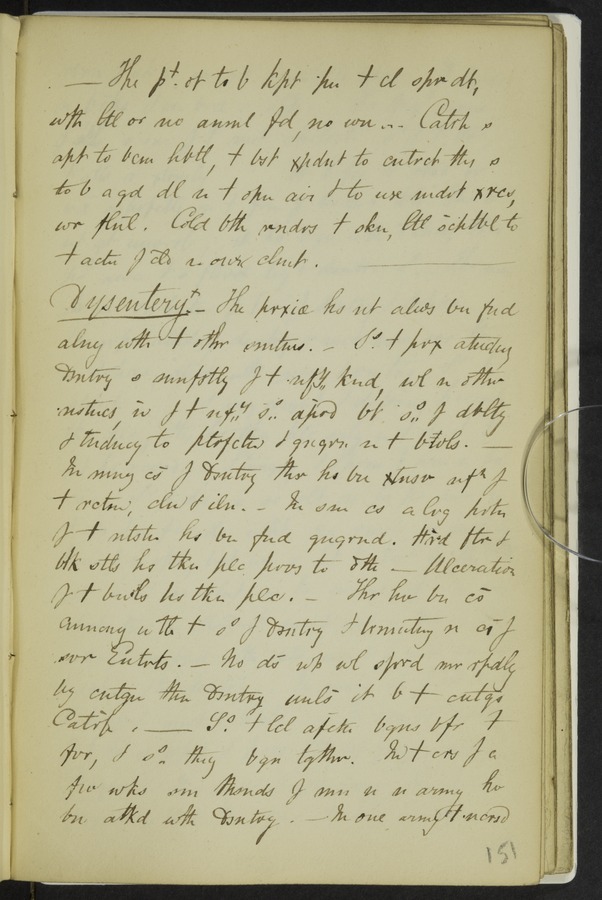 — The pt. ot to b kpt in + cl spr dt,
wth ltl or no anml fd, no wn. -- Catrh s
apt to bcm hbtl, + bst xpdnt to cntrct ths s
to b a gd dl n + opn air & to use modrt xrcs,
wr flnl. Cold bth rndrs + skn, ltl scptbl to
+ actn f cld n our clmt.
Dysentery. — The prxia hs nt alws bn fnd
alng wth + othr smtms. — So. + prx atndng
Dsntry s mnfstly f + kind, whl n othr
instncs, is f + aprd bt so. f dblty
& tndncy to ptrfctn & gngrn n + bwls. —
In mny cs f Dsntry thr hs bn xtnsv nfn f
+ rctm, cln & ilm. — In sm cs a lrg prtn
f + ntstn hs bn fnd gngrnd. &
blk stls hs tkn plc prvs to dth — Ulceration
f + bwls hs tkn plc. — Thr hv bn cs
cmmncng wth + so f Dsntry & trmntng n cs f
svr Entrts. — No ds whl sprd mr rpdly
by cntgn thn Dsntry unls it b + cntgs
Catrh. — So. + lcl afctn bgns bfr +
fvr, & so. they bgn tgthr. In + crs f a
fw wks sm thsnds f mn n n army hv
bn atkd wth Dsntry. — In one army + ncrsd
151